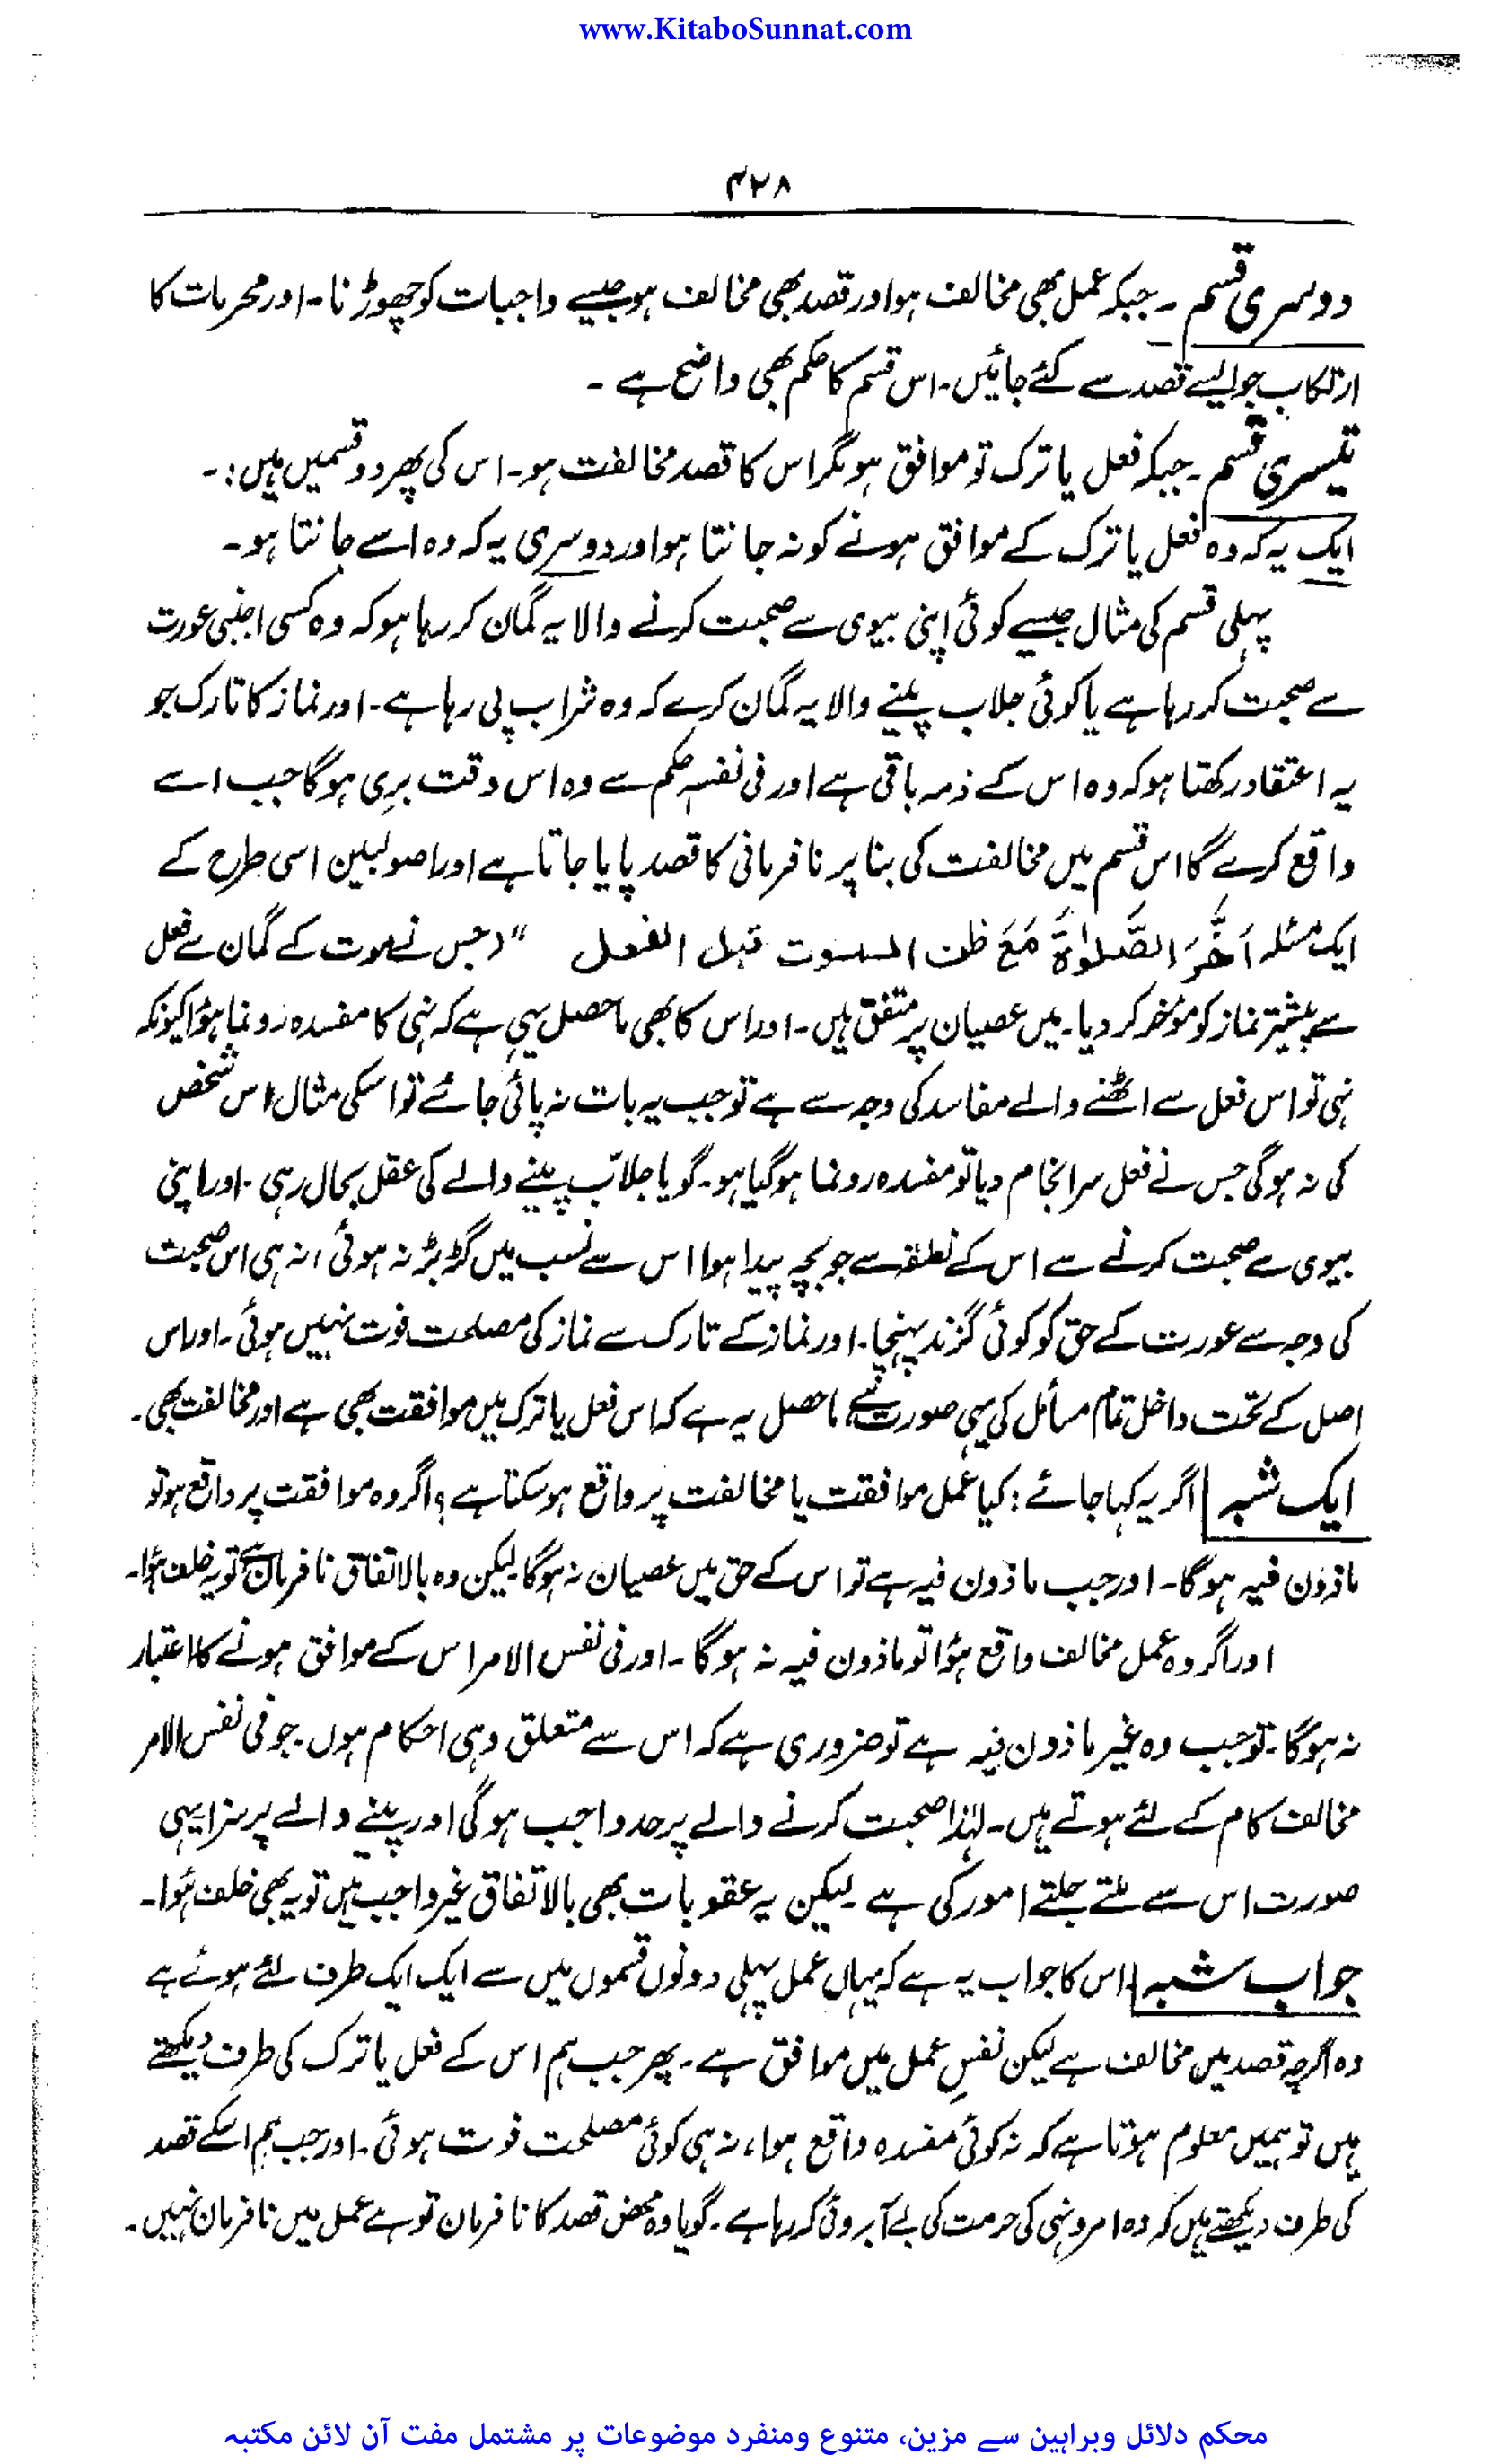 www.KitaboSunnat.com
۴۲۸
دوسری قسم ۔ جبکہ عمل بھی مخالف ہو اور قصد بھی مخالف ہو جیسے واجبات کو چھوڑنا۔ اور محرمات کا
ارتکاب جو ایسے قصد سے کئے جائیں۔ اس قسم کا حکم بھی واضح ہے ۔
تیسری قسم ۔ جبکہ فعل یا ترک تو موافق ہو مگر اس کا قصد مخالفت ہو۔ اس کی پھر دو قسمیں ہیں :۔
ایک یہ کہ وہ فعل یا ترک کے موافق ہونے کو نہ جانتا ہو اور دوسری یہ کہ وہ اسے جانتا ہو۔
پہلی قسم کی مثال جیسے کوئی اپنی بیوی سے صحبت کرنے والا یہ گمان کر رہا ہو کہ وہ کسی اجنبی عورت
سے صحبت کر رہا ہے یا کوئی جلاب پینے والا یہ گمان کرے کہ وہ شراب پی رہا ہے۔ اور نماز کا تارک جو
یہ اعتقاد رکھتا ہو کہ وہ اس کے ذمہ باقی ہے اور فی نفسہٖ حکم سے وہ اس وقت بری ہوگا جب اسے
واقع کرے گا اس قسم میں مخالفت کی بنا پر نافرمانی کا قصد پایا جاتا ہے اور اصولیین اسی طرح کے
ایک مسئلہ اَخَّرَ الصَّلوٰۃَ مَعَ ظن الموت قبل الفعل " (جس نے موت کے گمان سے فعل
سے پیشتر نماز کو مؤخر کر دیا۔ میں عصیان پر متفق ہیں۔ اور اس کا بھی ماحصل یہی ہے کہ نہی کا مفسدہ رونما ہؤا کیونکہ
نہی تو اس فعل سے اٹھنے والے مفاسد کی وجہ سے ہے تو جب یہ بات نہ پائی جائے تو اسکی مثال اس شخص
کی نہ ہوگی جس نے فعل سرانجام دیا تو مفسدہ رونما ہوگیا ہو۔ گویا جلاب پینے والے کی عقل بحال رہی ۔ اور اپنی
بیوی سے صحبت کرنے سے اس کے نطفہ سے جو بچہ پیدا ہوا اس سے نسب میں گڑبڑ نہ ہوئی، نہ ہی اس صحبت
کی وجہ سے عورت کے حق کو کوئی گزند پہنچا۔ اور نماز کے تارک سے نماز کی مصلحت فوت نہیں ہوئی ۔ اور اس
اصل کے تحت داخل تمام مسائل کی یہی صورت ہے ماحصل یہ ہے کہ اس فعل یا ترک میں موافقت بھی ہے اور مخالفت بھی۔
ایک شبہ | اگر یہ کہا جائے : کیا عمل موافقت یا مخالفت پر واقع ہو سکتا ہے ؟ اگر وہ موافقت پر واقع ہو تو
ماذون فیہ ہوگا ۔ اور جب ماذون فیہ ہے تو اس کے حق میں عصیان نہ ہوگا۔ لیکن وہ بالاتفاق نافرمان ہے تو یہ خلف ہؤا۔
اور اگر وہ عمل مخالف واقع ہؤا تو ماذون فیہ نہ ہوگا ۔ اور فی نفس الامر اس کے موافق ہونے کا اعتبار
نہ ہوگا ۔ تو جب وہ غیر ماذون فیہ ہے تو ضروری ہے کہ اس سے متعلق وہی احکام ہوں جو فی نفس الامر
مخالف کام کے لئے ہوتے ہیں۔ لہٰذا صحبت کرنے والے پر حد واجب ہوگی اور پینے والے پر سزا یہی
صورت اس سے ملتے جلتے امور کی ہے ۔ لیکن یہ عقوبات بھی بالاتفاق غیر واجب ہیں تو یہ بھی خلف ہُوا۔
جواب شبہ | اس کا جواب یہ ہے کہ یہاں عمل پہلی دونوں قسموں میں سے ایک ایک طرف لئے ہوئے ہے
وہ اگرچہ قصد میں مخالف ہے لیکن نفسِ عمل میں موافق ہے ۔ پھر جب ہم اس کے فعل یا ترک کی طرف دیکھتے
ہیں تو ہمیں معلوم ہوتا ہے کہ نہ کوئی مفسدہ واقع ہوا، نہ ہی کوئی مصلحت فوت ہوئی ۔ اور جب ہم اسکے قصد
کی طرف دیکھتے ہیں کہ وہ امر و نہی کی حرمت کی بے آبروئی کر رہا ہے ۔ گویا وہ محض قصد کا نافرمان تو ہے عمل میں نافرمان نہیں ۔
محکم دلائل وبراہین سے مزین، متنوع ومنفرد موضوعات پر مشتمل مفت آن لائن مکتبہ